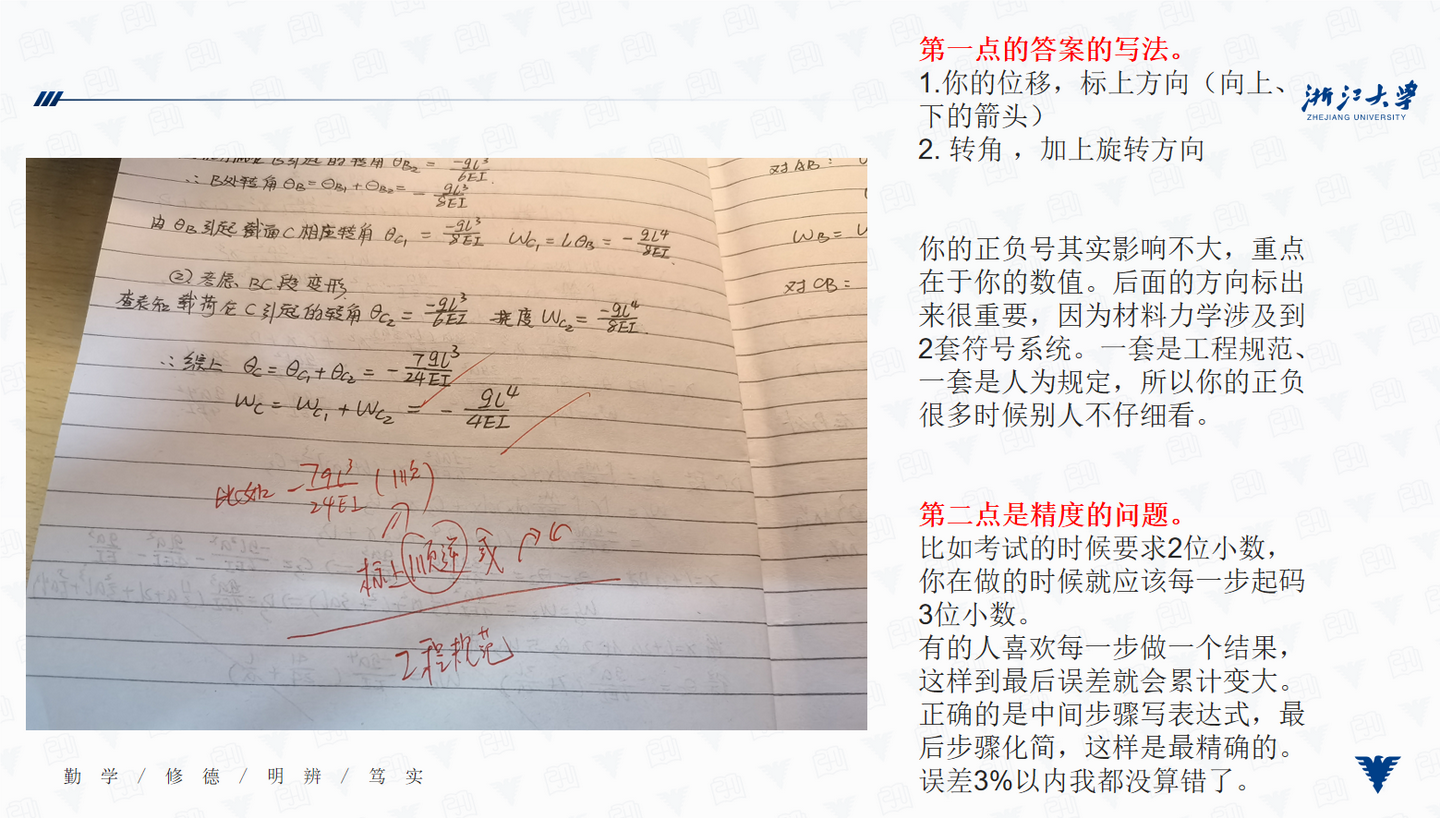 第一点的答案的写法。
1.你的位移，标上方向（向上、
下的箭头）
2. 转角 ，加上旋转方向
浙江大学
ZHEJIANG UNIVERSITY
引起的转角 θB₂ = -qL³/6EI
∴ B处转角 θB = θB₁ + θB₂ = - qL³/8EI
由 θB 引起截面C相应转角 θC₁ = -qL³/8EI WC₁ = LθB = - qL⁴/8EI.
② 考虑 BC段变形
查表知 载荷在C引起的转角 θC₂ = -qL³/6EI 挠度 WC₂ = -qL⁴/8EI.
∴ 综上 θC = θC₁ + θC₂ = - 7qL³/24EI
WC = WC₁ + WC₂ = - qL⁴/4EI
比如 - 7qL³/24EI (顺)
标上 顺逆 或
工程规范
对AB：
WB =
对CB：
你的正负号其实影响不大，重点
在于你的数值。后面的方向标出
来很重要，因为材料力学涉及到
2套符号系统。一套是工程规范、
一套是人为规定，所以你的正负
很多时候别人不仔细看。
第二点是精度的问题。
比如考试的时候要求2位小数，
你在做的时候就应该每一步起码
3位小数。
有的人喜欢每一步做一个结果，
这样到最后误差就会累计变大。
正确的是中间步骤写表达式，最
后步骤化简，这样是最精确的。
误差3%以内我都没算错了。
勤 学 / 修 德 / 明 辨 / 笃 实